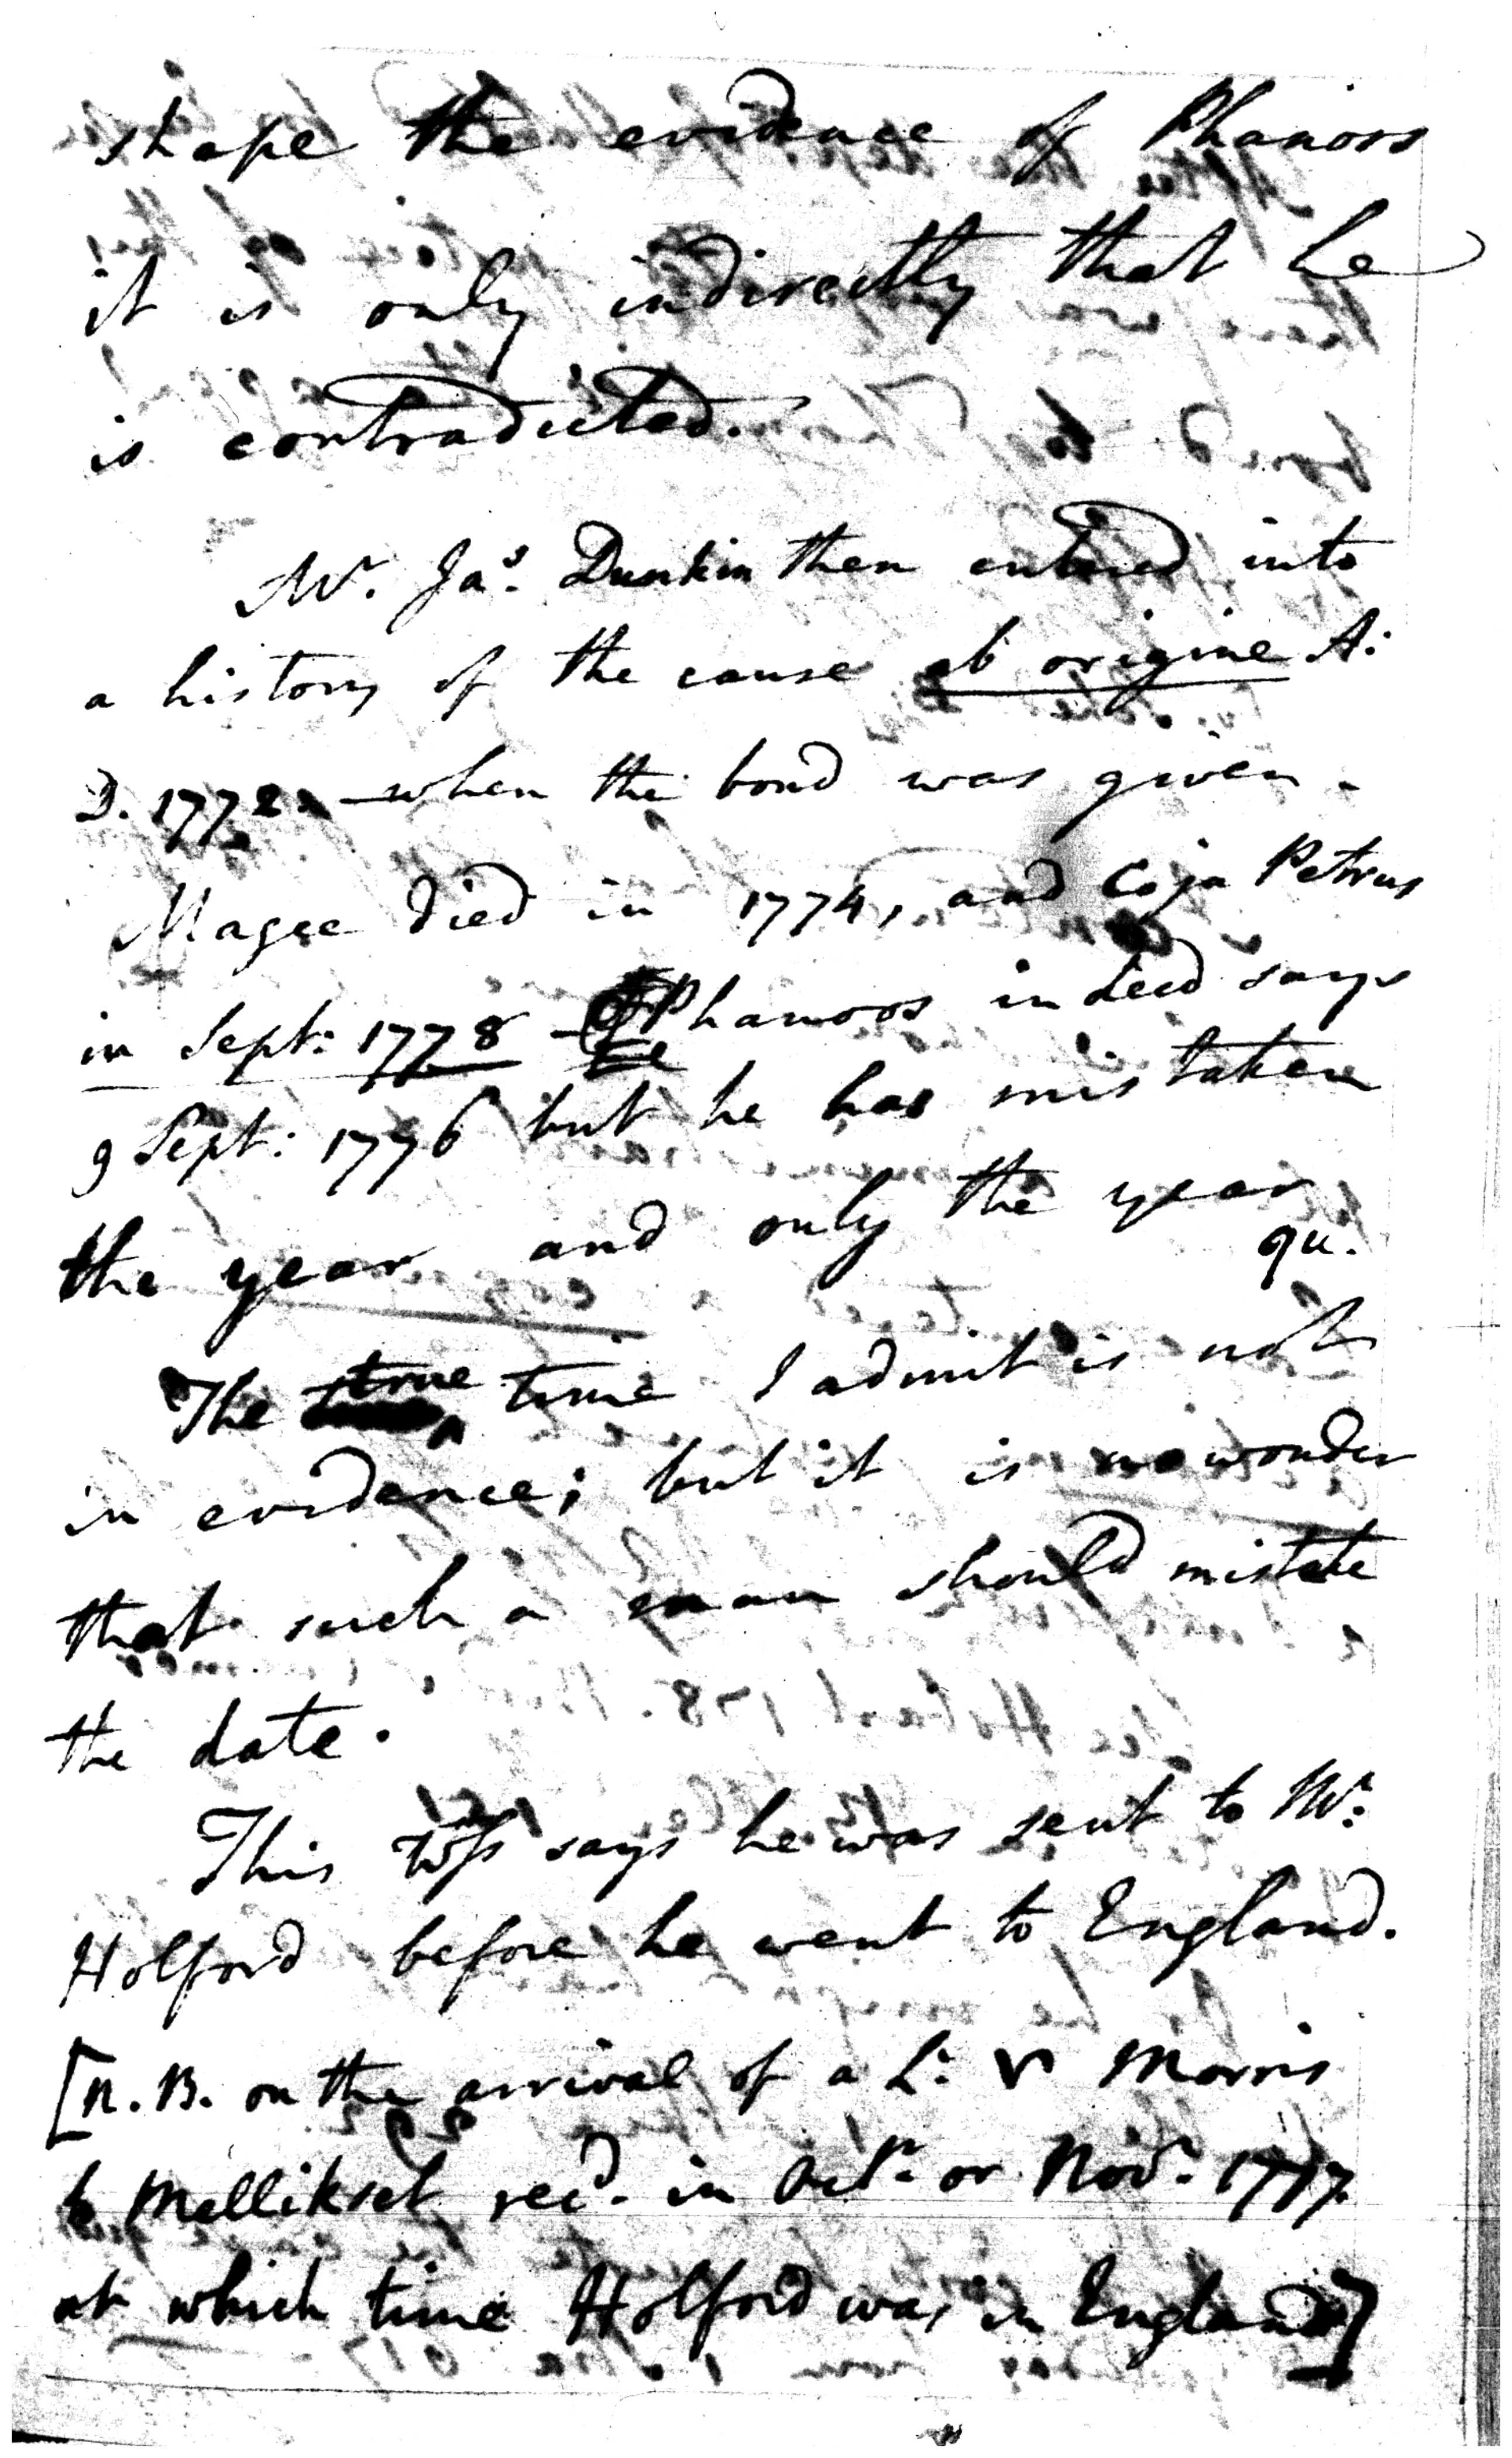 shape the evidence of Phanoos
it is only indirectly that he
is contradicted.
Mr. Jas. Dunkin then entered into
a history of the cause ab origine A:
D. 1772 - when the bond was given -
Magee died in 1774, and Coja Petrus
in Sept: 1778 - Phanoos indeed says
9 Sept: 1776 but he has mistaken
the year and only the year
qu.
The true time I admit is not
in evidence; but it is no wonder
that such a man should mistake
the date.
This wss says he was sent to Mr.
Holford before he went to England.
[N.B. on the arrival of a L: Morris
to Mellikset recd. in Octr. or Novr. 1777
at which time Holford was in England]